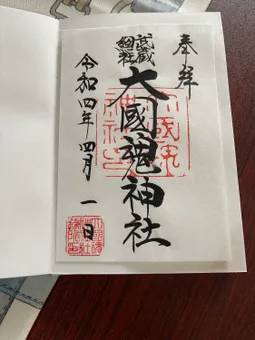 奉拝
武蔵
總社
大國魂神社
令和四年四月一日